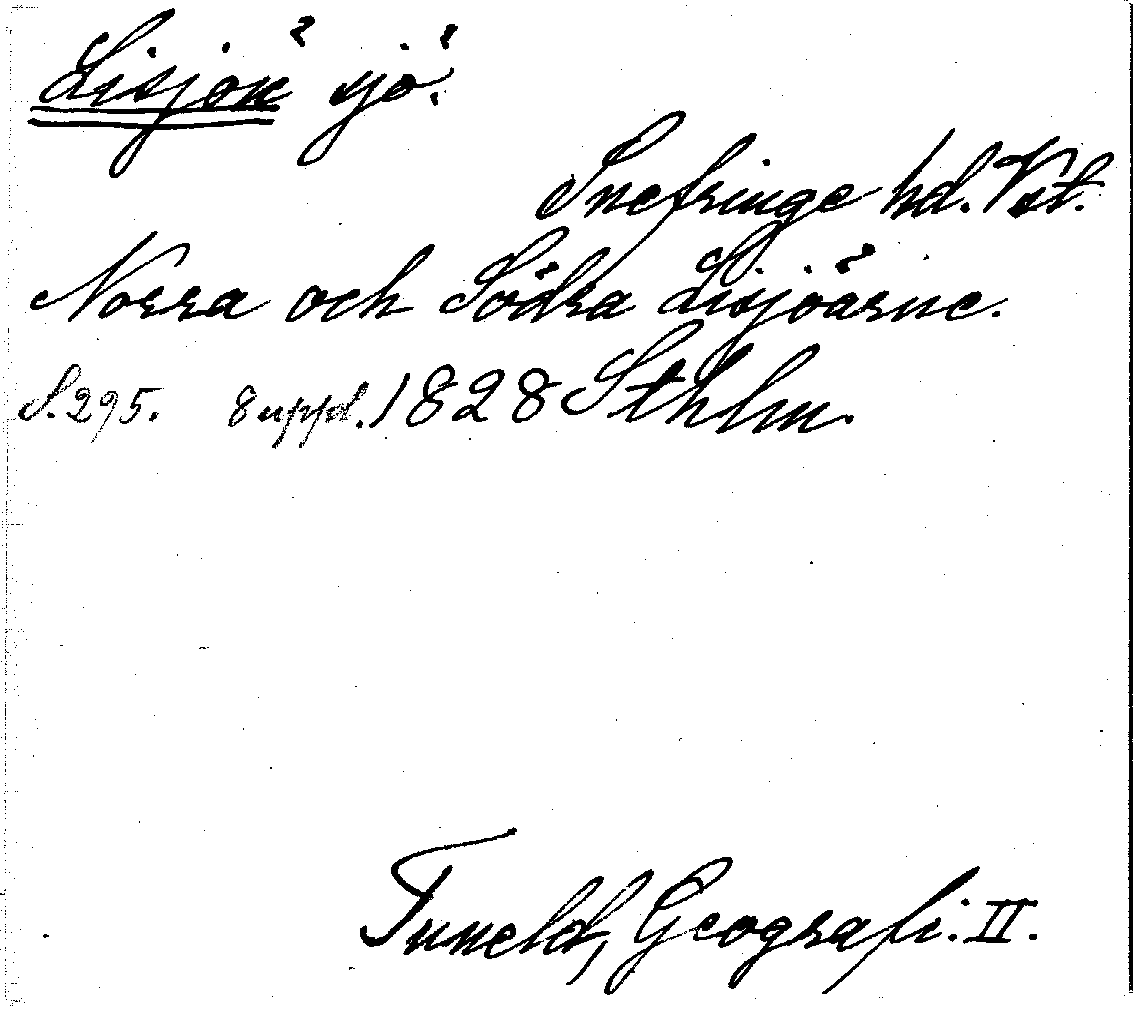 Lisjön sjö.
Snefringe hd. Vstl.
Norra och Södra Lisjöarne.
S. 295. 8 uppl. 1828 Sthlm.
Tuneld, Geografi. II.